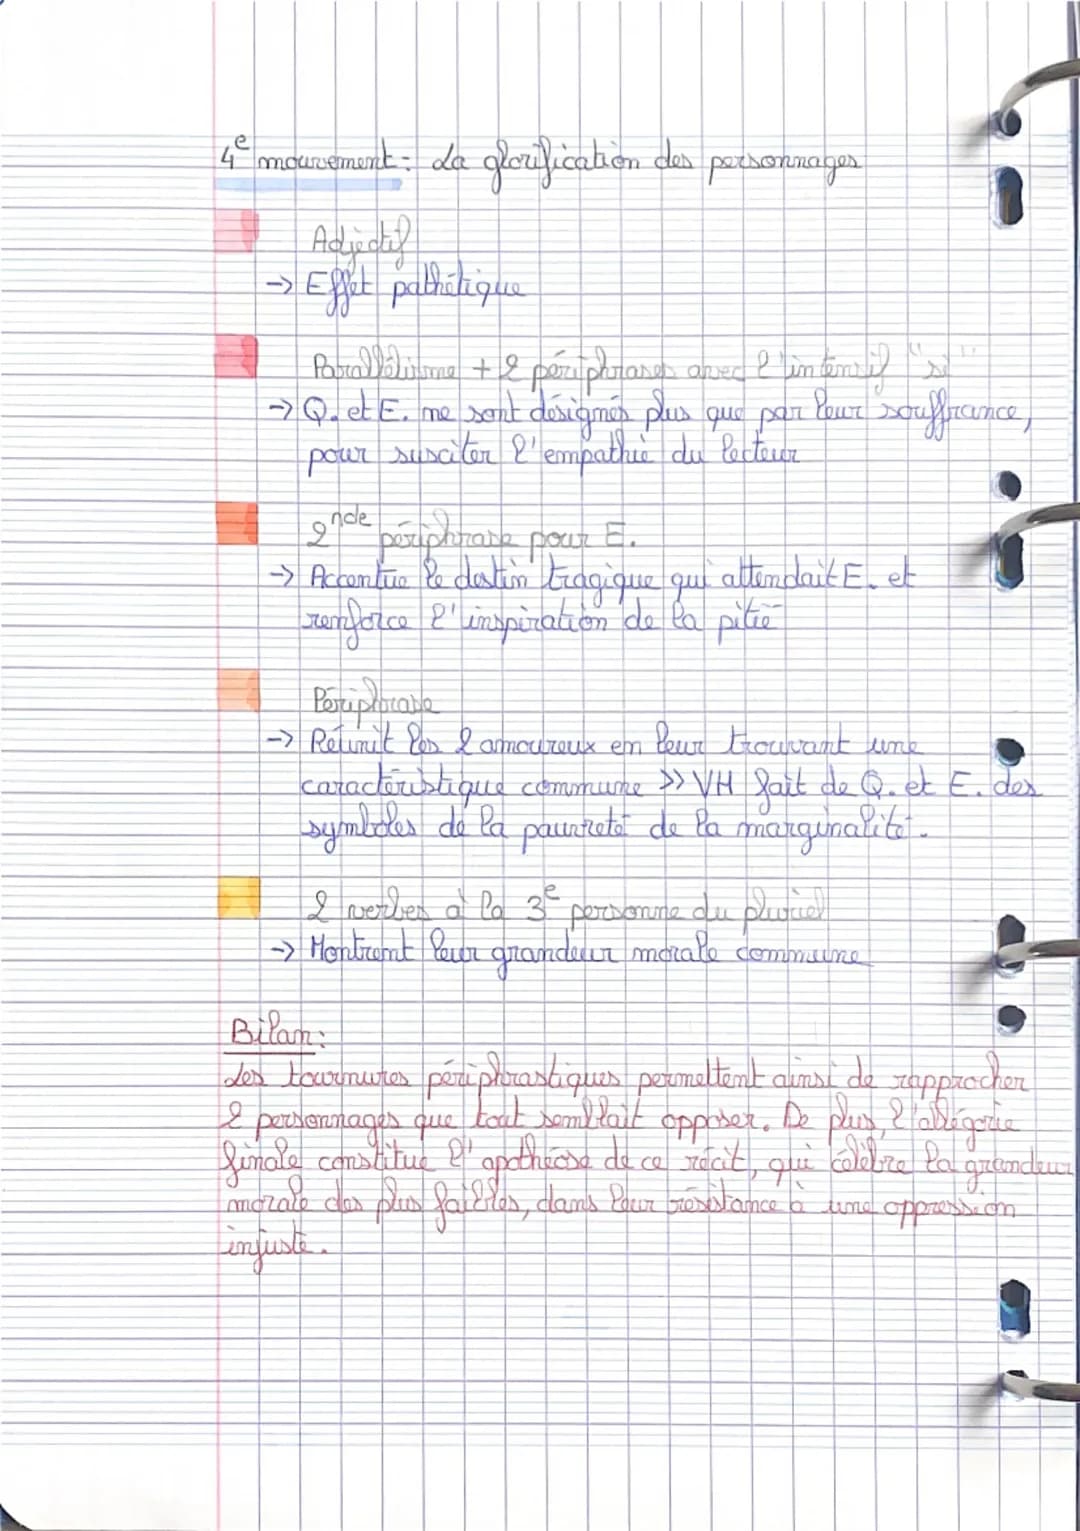 4e mouvement : La glorification des personnages
Adjectif
→ Effet pathétique
Parallélisme + 2 périphrases avec l'intensif "si"
→ Q. et E. ne sont désignés plus que par leur souffrance,
pour susciter l'empathie du lecteur
2nde périphrase pour E.
→ Accentue le destin tragique qui attendait E. et
renforce l'inspiration de la pitié
Périphrase
→ Réunit les 2 amoureux en leur trouvant une
caractéristique commune >> VH fait de Q. et E. des
symboles de la pauvreté de la marginalité.
2 verbes à la 3e personne du pluriel
→ Montrent leur grandeur morale commune
Bilan :
Les tournures périphrastiques permettent ainsi de rapprocher
2 personnages que tout semblait opposer. De plus, l'allégorie
finale constitue l'apothéose de ce récit, qui célèbre la grandeur
morale des plus faibles, dans leur résistance à une oppression
injuste.